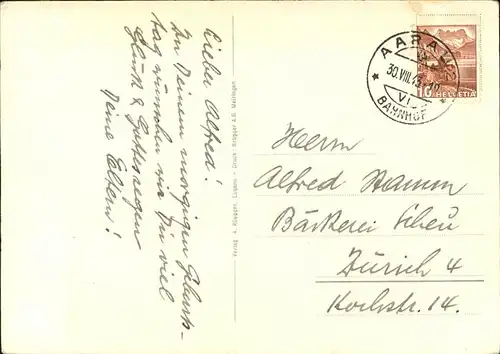 Liebe Alfred!
Zu Deinem morgigen Geburts-
tag wünschen wir Dir viel
Glück & Gottessegen
Deine Eltern!
Verlag A. Rüegger, Lugano - Druck: Brügger A.G. Meiringen
AARAU
30.VIII.43
BAHNHOF
10
HELVETIA
Herrn
Alfred Stamm
Bäckerei Scheu
Zürich 4
Kochstr. 14.